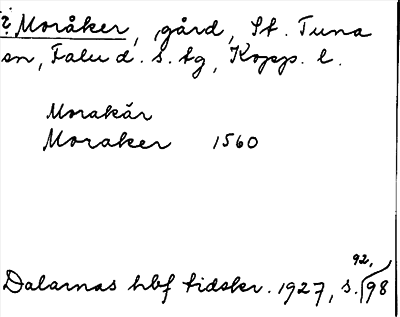 ? Moråker, gård, St. Tuna
sn, Falu d. s. tg, Kopp. l.
Morakär
Moraker 1560
92,
Dalarnas hbf tidskr. 1927, s. 98